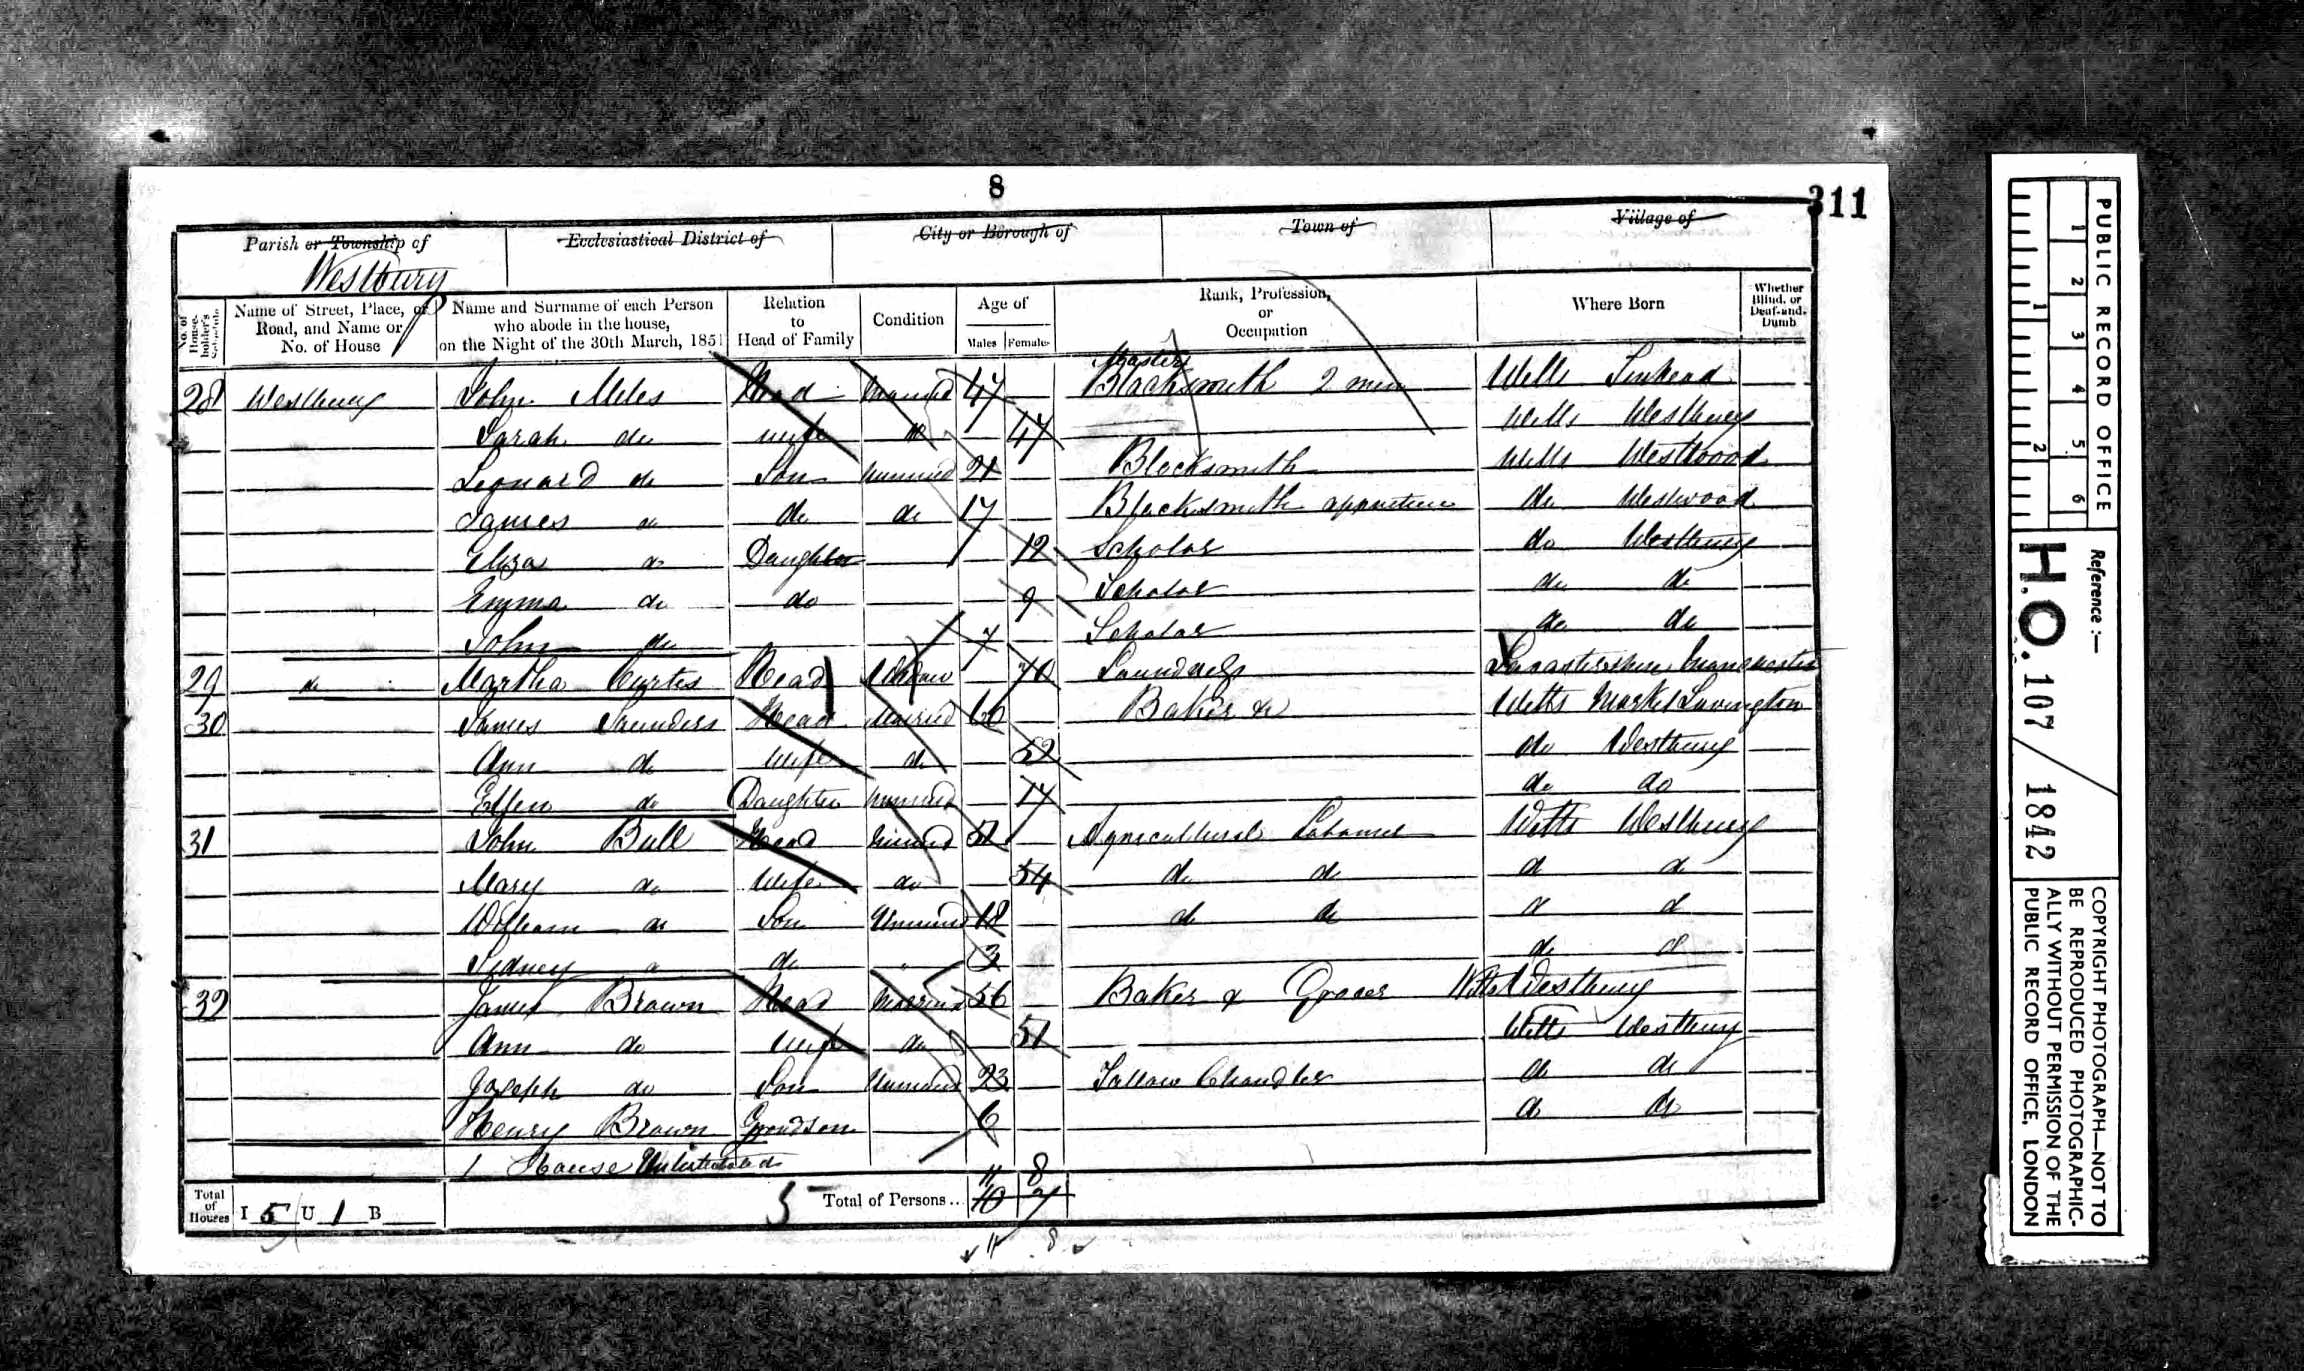 8
311
Parish or Township of
Ecclesiastical District of
City or Borough of
Town of
Village of
Westbury
No. of House-holder's Schedule
Name of Street, Place, or Road, and Name or No. of House
Name and Surname of each Person who abode in the house, on the Night of the 30th March, 1851
Relation to Head of Family
Condition
Age of
Males Females
Rank, Profession, or Occupation
Where Born
Whether Blind, or Deaf-and-Dumb
28 Westbury John Miles Head Married 47 Master Blacksmith 2 men Wilts
Sarah do Wife do 47 Wilts Westbury
Leonard do Son Unmarried 21 Blacksmith Wilts Westwood
James do do do 17 Blacksmith apprentice do Westwood
Eliza do Daughter 12 Scholar do Westbury
Emma do do 9 Scholar do do
John do 7 Scholar do do
29 do Martha Curtis Head Widow 70 Laundress Lancastershire Manchester
30 James Saunders Head Married 60 Baker &c Wilts Market Lavington
Ann do Wife do 52 do Westbury
Ellen do Daughter Unmarried 17 do do
31 John Bull Head Married 51 Agricultural Labourer Wilts Westbury
Mary do Wife do 54 do do do do
William do Son Unmarried 18 do do do do
Sidney do do 3 do do
32 James Brown Head Married 56 Baker & Grocer Wilts Westbury
Ann do Wife do 51 Wilts Westbury
Joseph do Son Unmarried 23 Tallow Chandler do do
Henry Brown Grandson 6 do do
1 House Uninhabited
11 8
Total of Houses I 5 U 1 B
5 Total of Persons.. 10 7
11 8
PUBLIC RECORD OFFICE
1 2 3 4 5 6
1 2
Reference:—
H.O. 107 / 1842
COPYRIGHT PHOTOGRAPH—NOT TO
BE REPRODUCED PHOTOGRAPHIC-
ALLY WITHOUT PERMISSION OF THE
PUBLIC RECORD OFFICE, LONDON